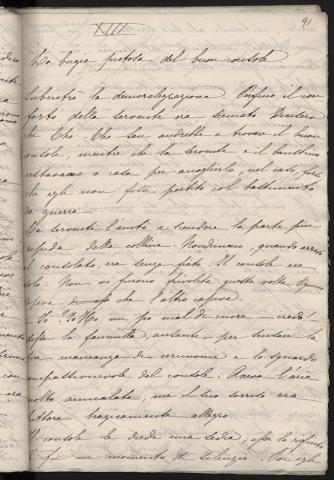 91
XIII
La bugia pietosa del buon console
Subentrò la demoralizzazione. Perfino il con
forto della servente era
che Cho-Cho-San andrebbe a trovare il buon
console, mentre che la servente e il bambino
restavano a casa per accoglierlo, nel caso, forse
che egli non fosse partito col bastimento
da guerra.
La servente l'aiutò a scendere la parte più
ripida della collina. Nondimeno, quando arrivò
il consolato, era senza fiato. Il console era
solo. Non vi furono frivolità questa volta. Ognuno
sapeva ciò che l'altro capiva.
un po' mal di cuore
la fanciulla, ansante, per scusare la
mancanza di cerimonie e lo sguardo
compassionevole del console. Aveva l'aria
molto ammalata; ma il suo sorriso era
ancora tragicamente allegro.
Il console le diede una sedia;
fu un momento di silenzio. Poi egli